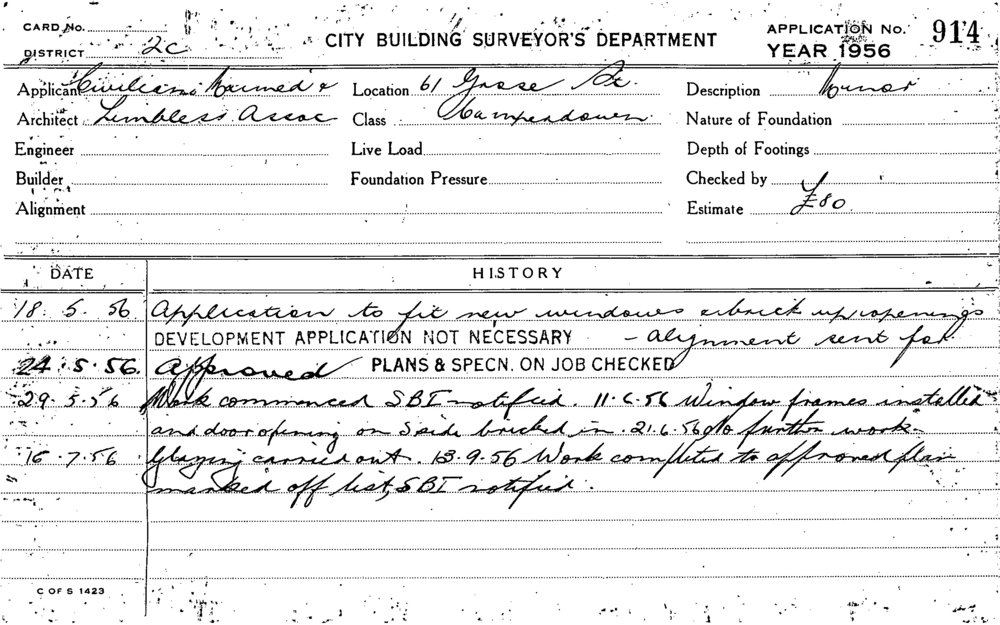 CARD No.
DISTRICT 2C
CITY BUILDING SURVEYOR'S DEPARTMENT
APPLICATION No. 914
YEAR 1956
Applicant Civilian Maimed &
Architect Limbless Assoc
Engineer
Builder
Alignment
Location 61 Gosse St.
Class Camperdown
Live Load
Foundation Pressure
Description Minor
Nature of Foundation
Depth of Footings
Checked by
Estimate £80.
DATE HISTORY
18. 5. 56 Application to fit new windows & brick up openings
DEVELOPMENT APPLICATION NOT NECESSARY - alignment sent for
24.5.56. Approved PLANS & SPECN. ON JOB CHECKED
29.5.56 Work commenced SBI notified. 11.6.56 Window frames installed
and door opening on S side bricked in. 21.6.56 No further work-
16.7.56 Glazing carried out. 13.9.56 Work completed to approved plan
marked off list, SBI notified.
C OF S 1423